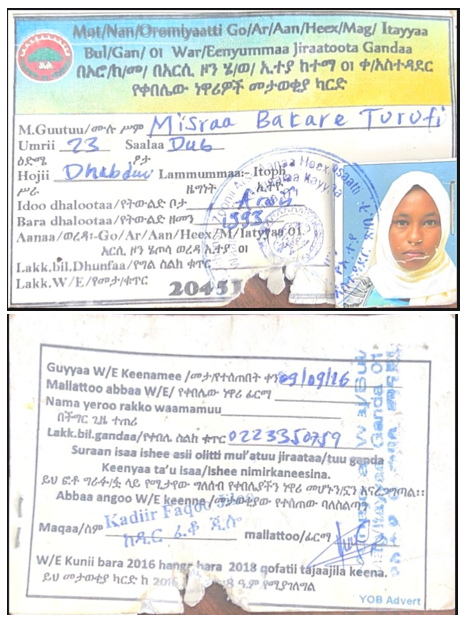 Mot/Nan/Oromiyaatti Go/Ar/Aan/Heex/Mag/ Itayyaa
Bul/Gan/ 01 War/Eenyummaa Jiraatoota Gandaa
በኦሮ/ክ/መ/ በአርሲ ዞን ሄ/ወ/ ኢተያ ከተማ 01 ቀ/አስተዳደር
የቀበሌው ነዋሪዎች መታወቂያ ካርድ
M.Guutuu/ሙሉ ሥም Misraa Bakare Turufi
Umrii 23 Saalaa Dub
ዕድሜ ፆታ
Hojii Dhabduu Lammummaa:- Itoph
ሥራ ዜግነት ኢትዮ
Idoo dhalootaa/የትውልድ ቦታ Arsii
Bara dhalootaa/የትውልድ ዘመን 1993
Aanaa/ወረዳ:-Go/Ar/Aan/Heex/M/Iatyyaa 01
አርሲ ዞን ሄጦሳ ወረዳ ኢተያ 01
Lakk.bil.Dhunfaa/የግል ስልክ ቁጥር
Lakk.W/E/የመታ/ቁጥር 20451
Guyyaa W/E Keenamee /መታ/የተሰጠበት ቀን 09/09/16
Mallattoo abbaa W/E/ የቀበሌው ነዋሪ ፊርማ
Nama yeroo rakko waamamuu
በችግር ጊዜ ተጠሪ
Lakk.bil.gandaa/የቀበሌ ስልክ ቁጥር 0223350759
Suraan isaa ishee asii olitti mul'atuu jiraataa/tuu ganda
Keenyaa ta'u isaa/Ishee nimirkaneesina.
ይህ ፎቶ ግራፉ/ፏ ላይ የሚታየው ግለሰብ የቀበሌያችን ነዋሪ መሆኑን/ኗን እናረጋግጣለን፡፡
Abbaa angoo W/E keenne /መታወቂያው የተሰጠው ባለስልጣን
Kadiir Faqoo
Maqaa/ስም ከዲር ፈቆ mallattoo/ፊርማ
W/E Kunii bara 2016 hanga bara 2018 qofatii tajaajila keena.
ይህ መታወቂያ ካርድ ከ 2016 ዓ.ም የሚያገለግል
YOB Advert